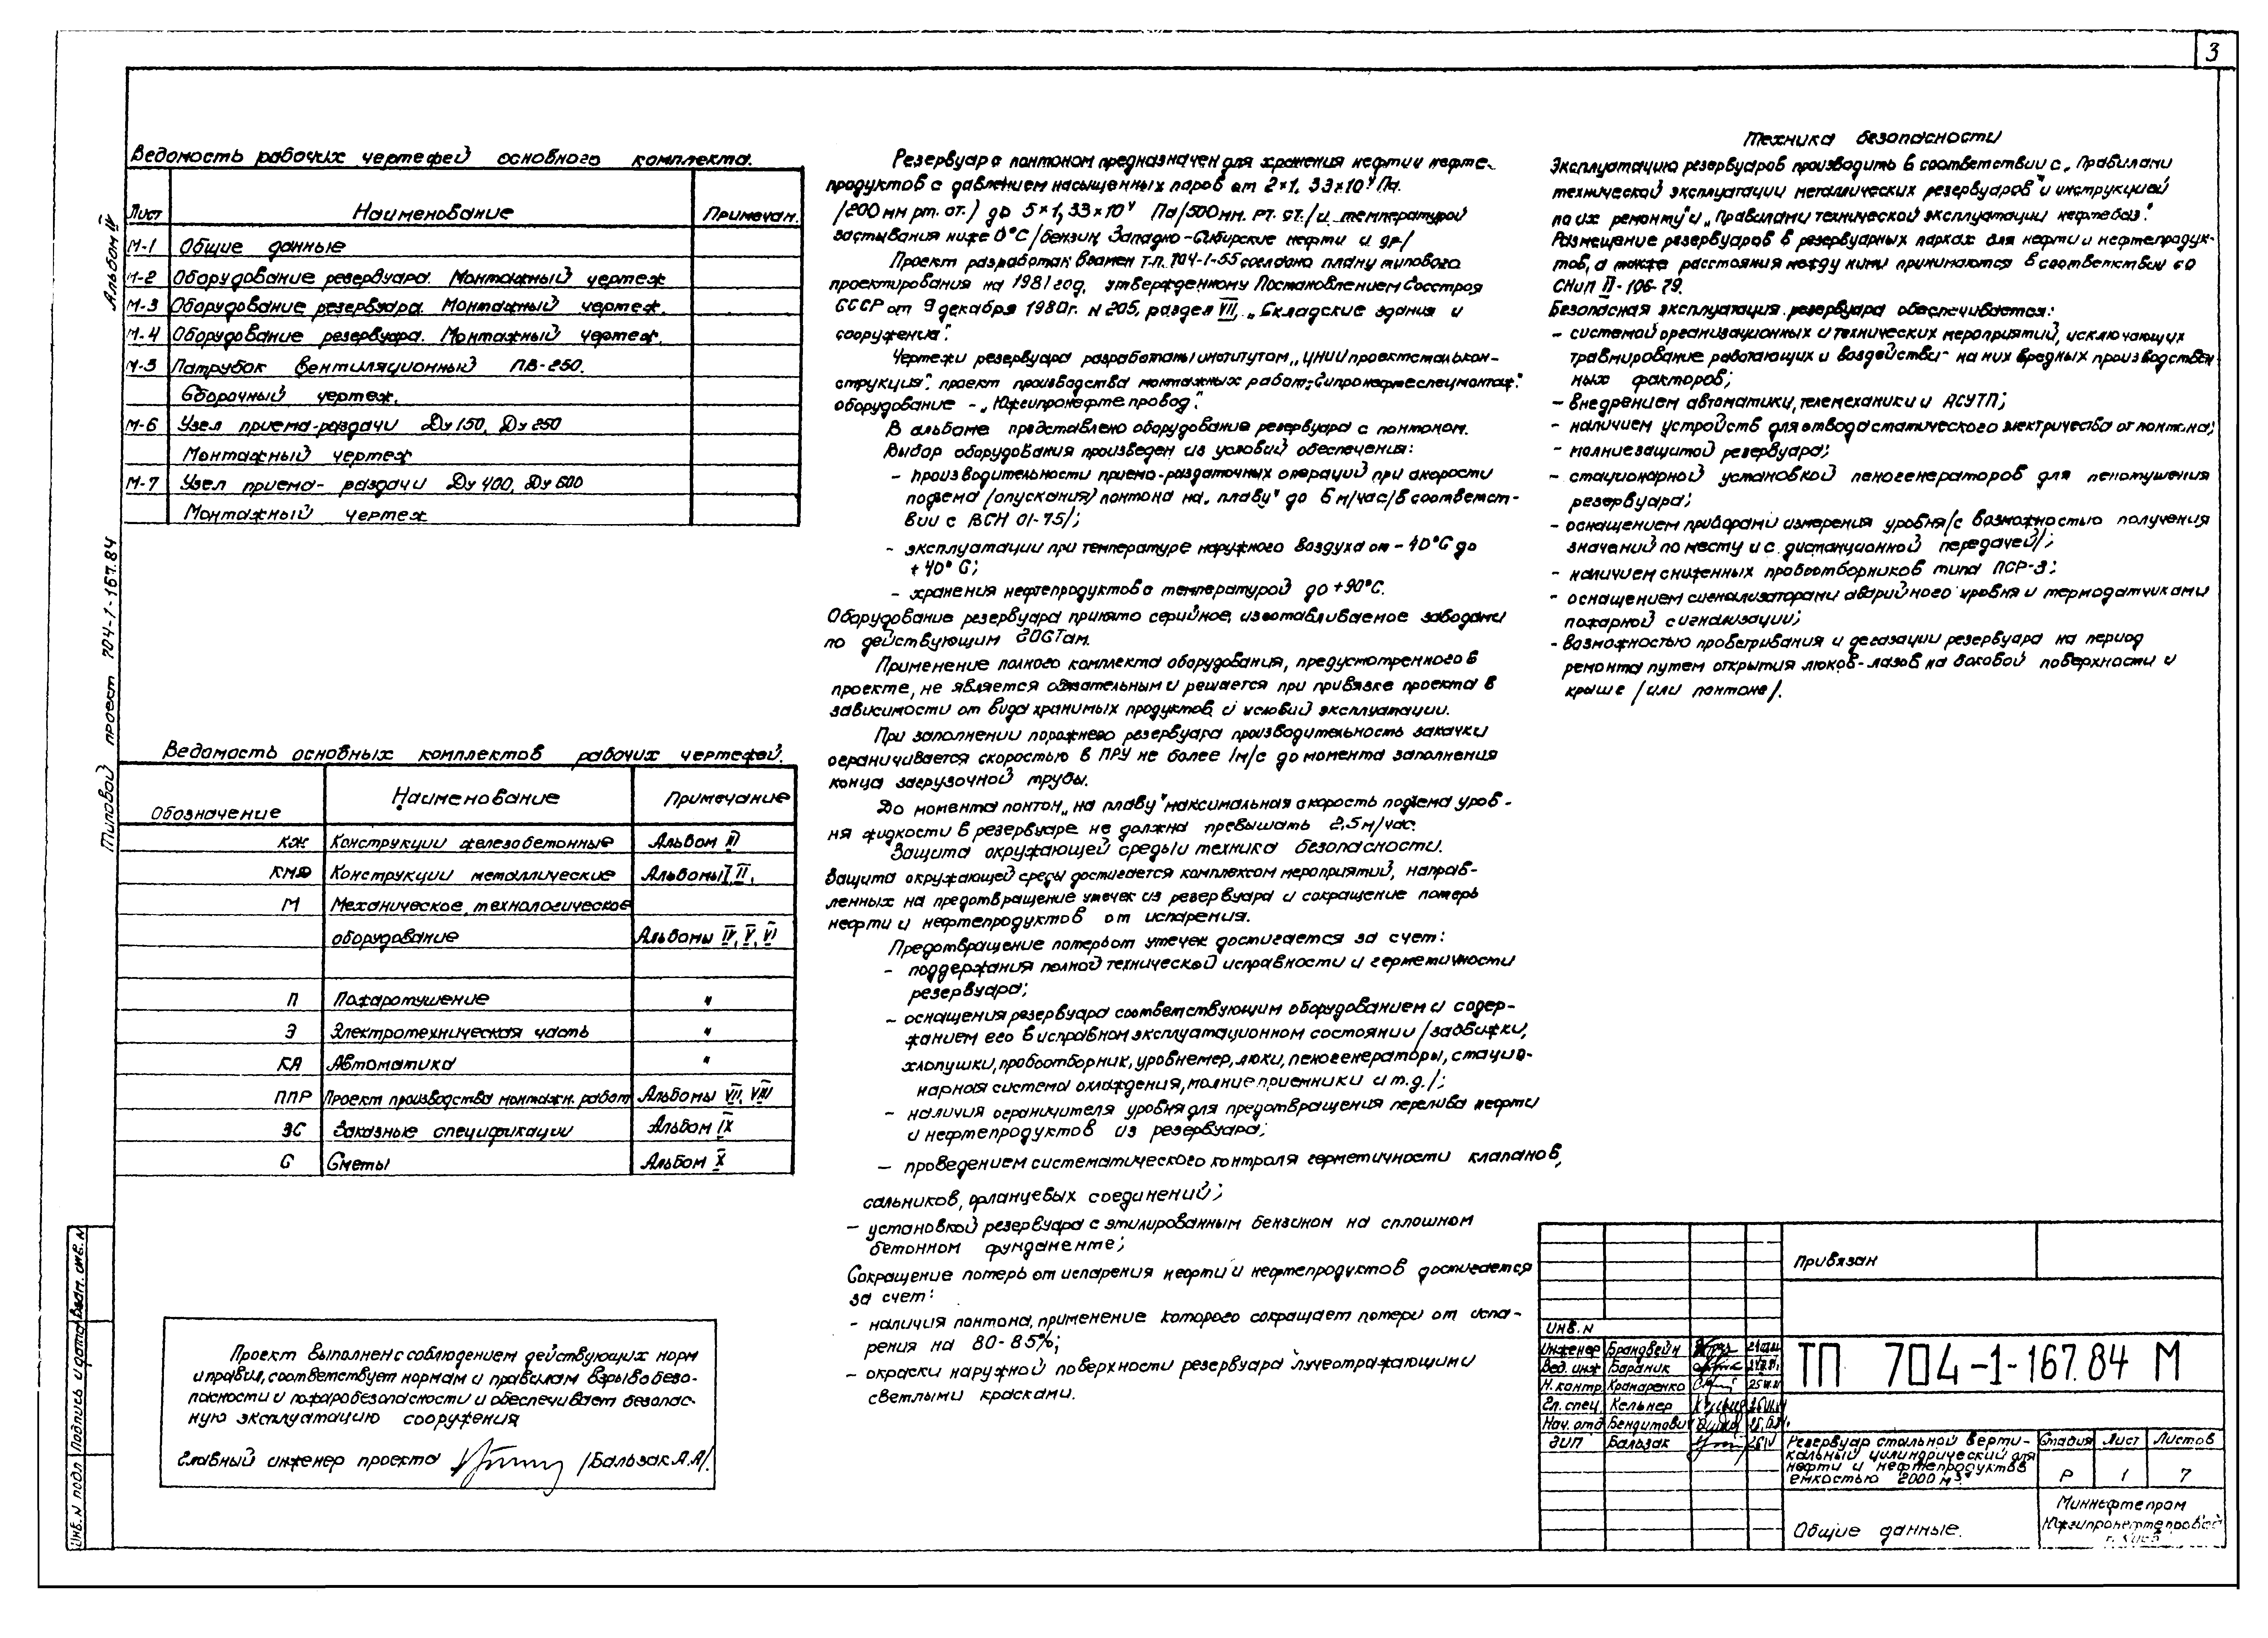 3
Альбом IV
Типовой проект 704-1-167.84
Ведомость рабочих чертежей основного комплекта.
Лист Наименование Примечан.
М-1 Общие данные
М-2 Оборудование резервуара. Монтажный чертеж
М-3 Оборудование резервуара. Монтажный чертеж.
М-4 Оборудование резервуара. Монтажный чертеж.
М-5 Патрубок вентиляционный ПВ-250.
Сборочный чертеж.
М-6 Узел приема-раздачи Ду 150, Ду 250
Монтажный чертеж
М-7 Узел приема- раздачи Ду 400, Ду 600
Монтажный чертеж
Ведомость основных комплектов рабочих чертежей.
Обозначение Наименование Примечание
КЖ Конструкции железобетонные Альбом III
КМД Конструкции металлические Альбомы I, II,
М Механическое, технологическое
оборудование Альбомы IV, V, VI
П Пожаротушение "
Э Электротехническая часть "
КА Автоматика "
ППР Проект производства монтажн. работ Альбомы VII, VIII
ЗС Заказные спецификации Альбом IX
С Сметы Альбом X
Проект выполнен с соблюдением действующих норм
и правил, соответствует нормам и правилам взрывобезо-
пасности и пожаробезопасности и обеспечивает безопас-
ную эксплуатацию сооружения
Главный инженер проекта /Бальзак А.А/.
Резервуар с понтоном предназначен для хранения нефти и нефте-
продуктов с давлением насыщенных паров от 2×1,33×10⁴ Па.
/200 мм рт. ст./ до 5×1,33×10⁴ Па/500мм. рт. ст./ и температурой
застывания ниже 0°С /бензин, Западно-Сибирские нефти и др/
Проект разработан взамен т.п. 704-1-55 согласно плану типового
проектирования на 1981 год, утвержденному Постановлением Госстроя
СССР от 9 декабря 1980г. N 205, раздел VII, „Складские здания и
сооружения".
Чертежи резервуара разработаны институтом „ЦНИИпроектсталькон-
струкция", проект производства монтажных работ-„Гипронефтеспецмонтаж",
оборудование - „Южгипронефтепровод".
В альбоме представлено оборудование резервуара с понтоном.
Выбор оборудования произведен из условий обеспечения:
- производительности приемо-раздаточных операций при скорости
подъема /опускания/ понтона на „плаву" до 6 м/час /в соответст-
вии с ВСН 01-75/;
- эксплуатации при температуре наружного воздуха от - 40°С до
+ 40° С;
- хранения нефтепродуктов с температурой до +90°С.
Оборудование резервуара принято серийное, изготавливаемое заводами
по действующим ГОСТам.
Применение полного комплекта оборудования, предусмотренного в
проекте, не является обязательным и решается при привязке проекта в
зависимости от вида хранимых продуктов и условий эксплуатации.
При заполнении порожнего резервуара производительность закачки
ограничивается скоростью в ПРУ не более 1м/с до момента заполнения
конца загрузочной трубы.
До момента понтон „на плаву" максимальная скорость подъема уров-
ня жидкости в резервуаре не должна превышать 2,5м/час.
Защита окружающей среды и техника безопасности.
Защита окружающей среды достигается комплексом мероприятий, направ-
ленных на предотвращение утечек из резервуара и сокращение потерь
нефти и нефтепродуктов от испарения.
Предотвращение потерь от утечек достигается за счет:
- поддержания полной технической исправности и герметичности
резервуара;
- оснащения резервуара соответствующим оборудованием и содер-
жанием его в исправном эксплуатационном состоянии /задвижки,
хлопушки, пробоотборник, уровнемер, люки, пеногенераторы, стацио-
нарная система охлаждения, молниеприемники и т.д./;
- наличия ограничителя уровня для предотвращения перелива нефти
и нефтепродуктов из резервуара;
- проведением систематического контроля герметичности клапанов,
сальников, фланцевых соединений;
- установкой резервуара с этилированным бензином на сплошном
бетонном фундаменте;
Сокращение потерь от испарения нефти и нефтепродуктов достигается
за счет:
- наличия понтона, применение которого сокращает потери от испа-
рения на 80-85%;
- окраски наружной поверхности резервуара лучеотражающими
светлыми красками.
Техника безопасности
Эксплуатацию резервуаров производить в соответствии с „Правилами
технической эксплуатации металлических резервуаров" и инструкцией
по их ремонту" и „Правилами технической эксплуатации нефтебаз".
Размещение резервуаров в резервуарных парках для нефти и нефтепродук-
тов, а также расстояния между ними принимаются в соответствии со
СНиП II-106-79.
Безопасная эксплуатация резервуара обеспечивается:
- системой организационных и технических мероприятий, исключающих
травмирование работающих и воздействи- на них вредных производствен
ных факторов;
- внедрением автоматики, телемеханики и АСУТП;
- наличием устройств для отвода статического электричества от понтона;
- молниезащитой резервуара;
- стационарной установкой пеногенераторов для пенотушения
резервуара;
- оснащением приборами измерения уровня/с возможностью получения
значений по месту и с дистанционной передачей/;
- наличием сниженных пробоотборников типа ПСР-3;
- оснащением сигнализаторами аварийного уровня и термодатчиками
пожарной сигнализации;
- возможностью проветривания и дегазации резервуара на период
ремонта путем открытия люков-лазов на боковой поверхности и
крыше /или понтоне/.
Привязан
инв. N
Инженер Брандвейн
Вед. инж Бараник
Н. контр. Крамаренко
Гл. спец. Кельнер
Нач. отд Бендитович
ГИП Бальзак
ТП 704-1-167.84 М
Резервуар стальной верти-
кальный цилиндрический для
нефти и нефтепродуктов
емкостью 2000 м³
Стадия Лист Листов
Р 1 7
Общие данные.
Миннефтепром
Южгипронефтепровод
г. Киев
Инв. N подл Подпись и дата Взам. инв. N